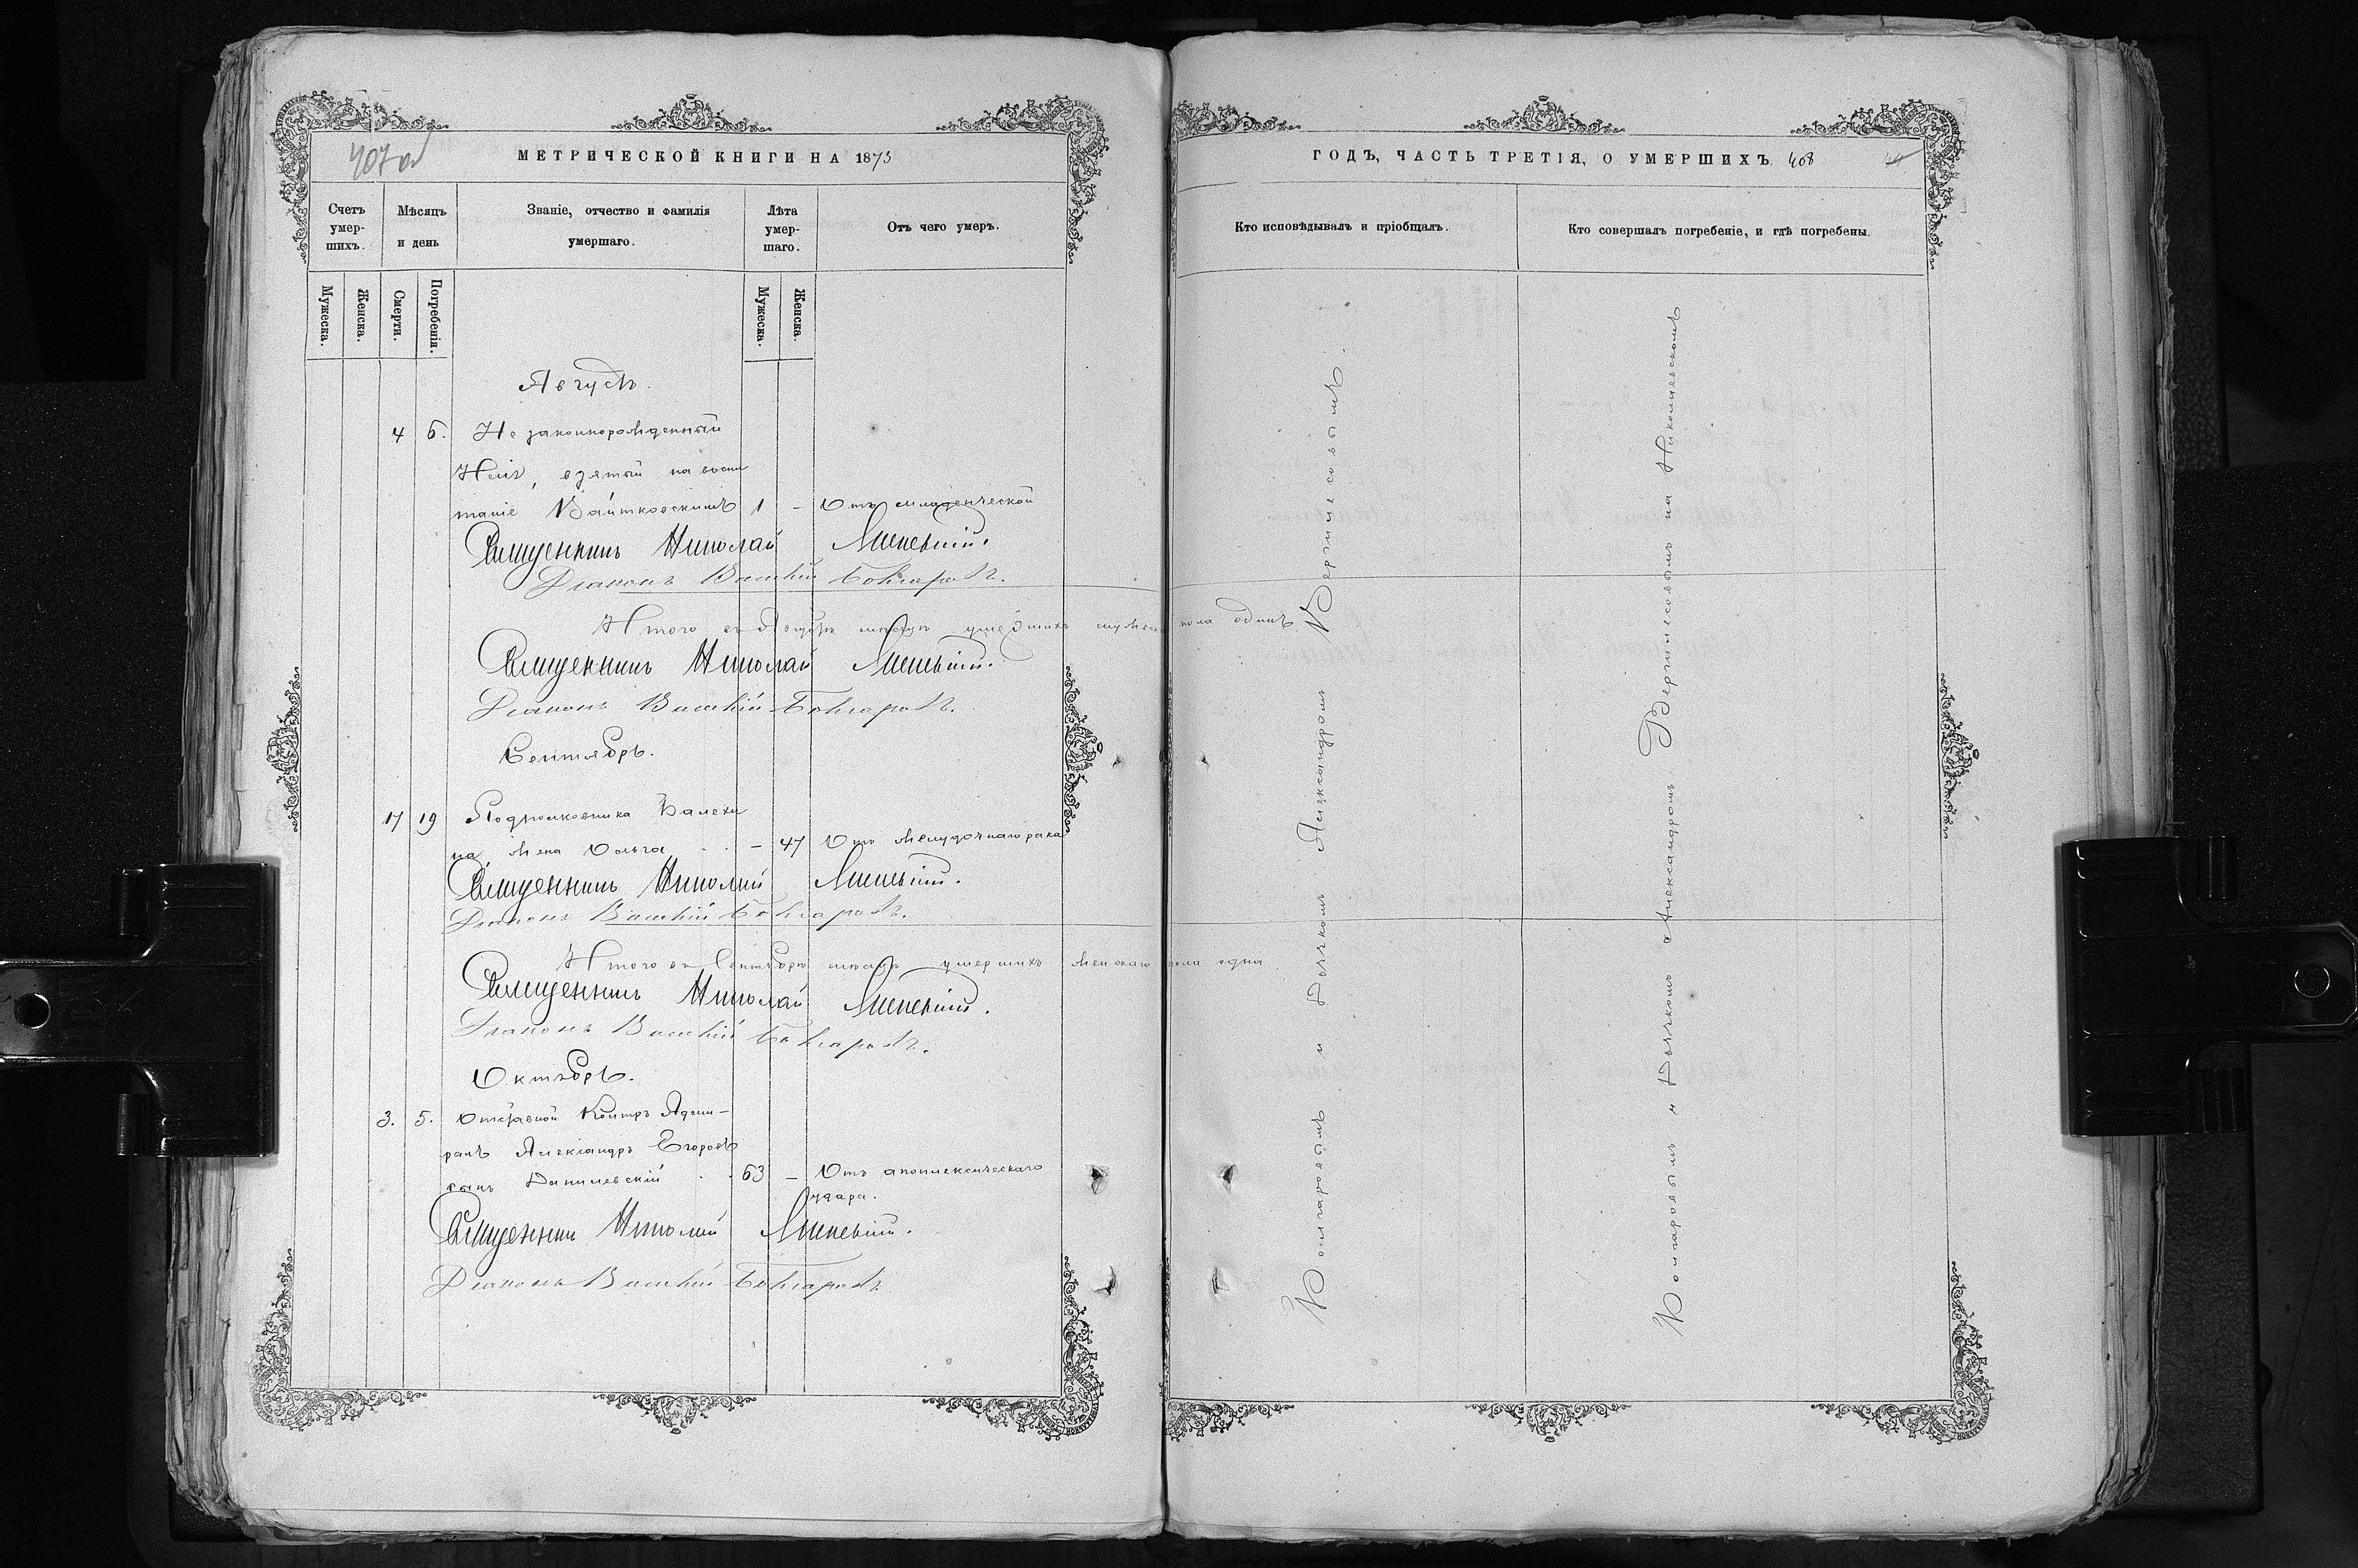 407 об
МЕТРИЧЕСКОЙ КНИГИ НА 1873
Счетъ умер-шихъ.
Мѣсяцъ и день
Званіе, отчество и фамилія умершаго.
Лѣта умер-шаго.
Отъ чего умеръ.
Мужеска.
Женска.
Смерти.
Погребенія.
Мужеска.
Женска.
Августъ.
4 6. Незаконнорожденный
взятый на воспи
таніе Войтковскимъ 1 - Отъ младенческой
Священникъ Николай
Діаконъ Василій Болгаровъ.
Итого въ Августѣ мѣсяцѣ умершихъ мужеска пола одинъ
Священникъ Николай
Діаконъ Василій Болгаровъ.
Сентябрь.
17 19 Подполковника
на, жена Ольга - 47 Отъ желудочнаго рака
Священникъ Николай
Діаконъ Василій Болгаровъ.
Итого въ Сентябрѣ мѣсяцѣ умершихъ женскаго пола одна
Священникъ Николай
Діаконъ Василій Болгаровъ.
Октябрь.
3. 5. Отставной Контръ Адми-
ралъ Александръ Егоровъ
сынъ Данилевскій 63 - Отъ апоплексическаго
удара.
Священникъ Николай
Діаконъ Василій Болгаровъ
ГОДЪ, ЧАСТЬ ТРЕТІЯ, О УМЕРШИХЪ. 408
Кто исповѣдывалъ и пріобщалъ.
Кто совершалъ погребеніе, и гдѣ погребены.
и Дьячкомъ Александромъ
и Дьячкомъ Александромъ на